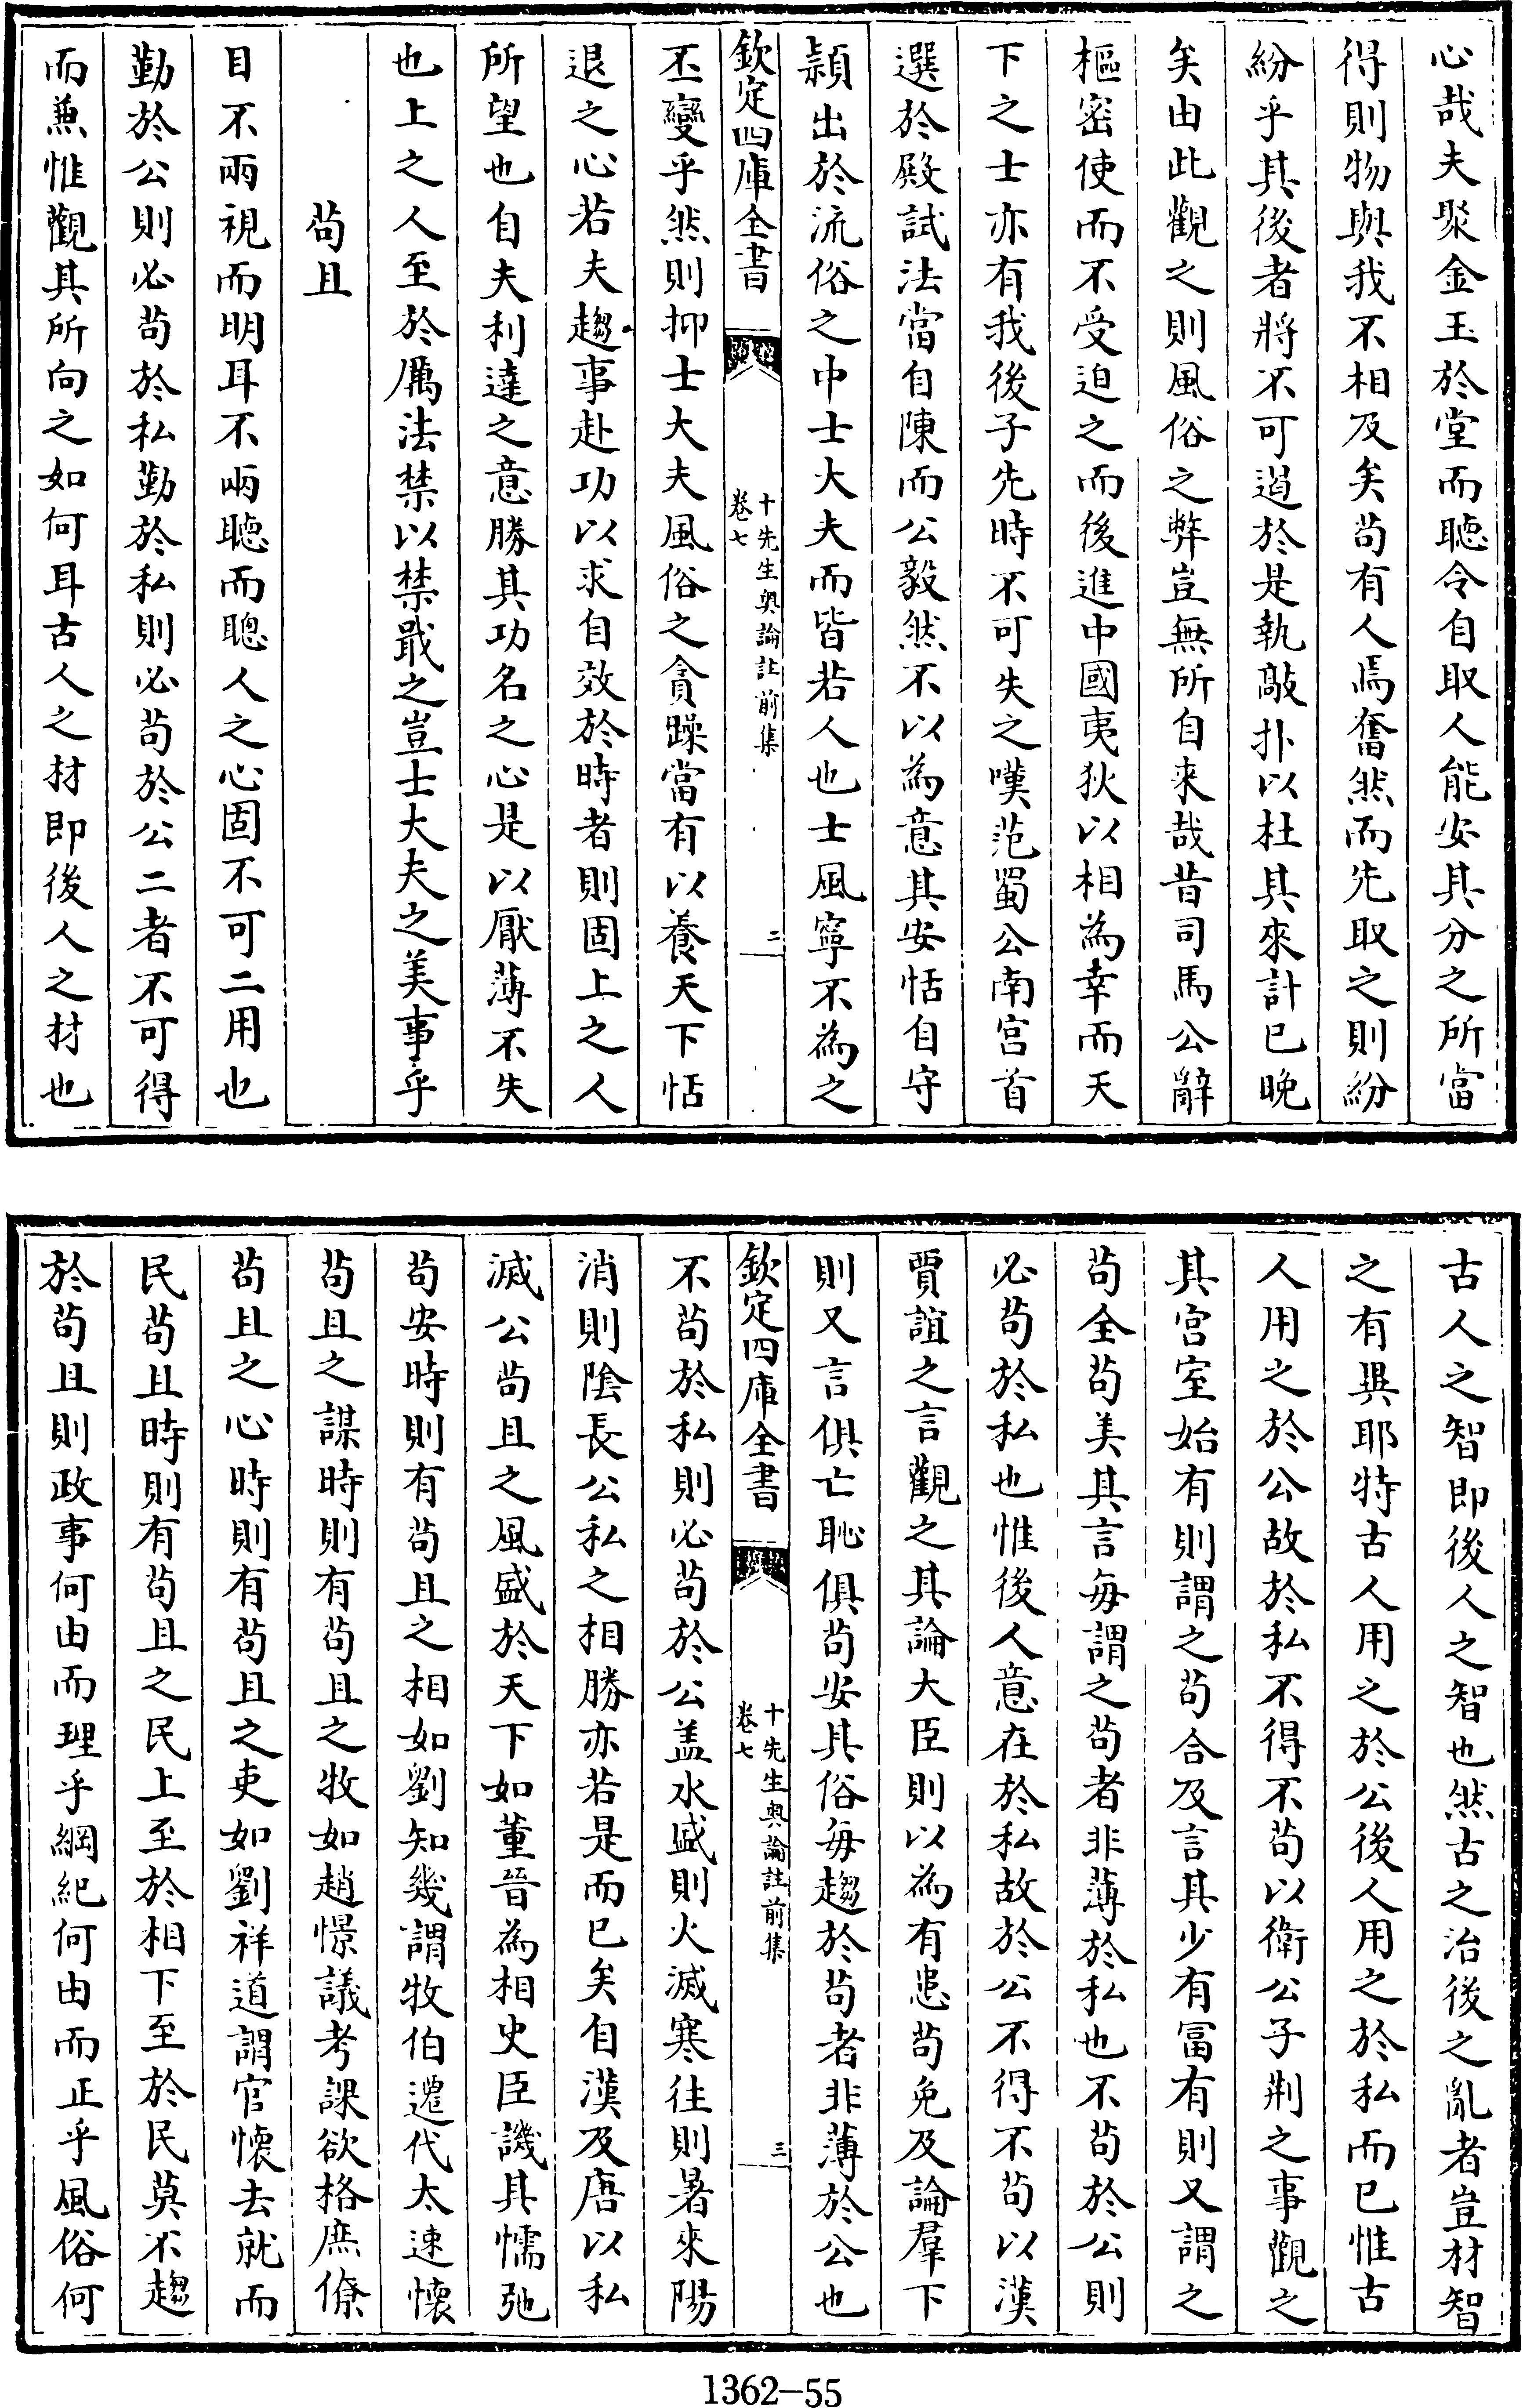 心哉夫聚金玉於堂而聽令自取人能安其分之所當
得則物與我不相及矣苟有人焉奮然而先取之則紛
紛乎其後者將不可遏於是執敲扑以杜其來計已晚
矣由此觀之則風俗之弊豈無所自來哉昔司馬公辭
樞密使而不受迫之而後進中國夷狄以相為幸而天
下之士亦有我後子先時不可失之嘆范蜀公南宫首
選於殿試法當自陳而公毅然不以為意其安恬自守
穎出於流俗之中士大夫而皆若人也士風寧不為之
欽定四庫全書
十先生奥論註前集
卷七
二
丕變乎然則抑士大夫風俗之貪躁當有以養天下恬
退之心若夫趨事赴功以求自效於時者則固上之人
所望也自夫利達之意勝其功名之心是以厭薄不失
也上之人至於厲法禁以禁戢之豈士大夫之美事乎
苟且
目不兩視而明耳不兩聽而聰人之心固不可二用也
勤於公則必苟於私勤於私則必苟於公二者不可得
而兼惟觀其所向之如何耳古人之材即後人之材也
古人之智即後人之智也然古之治後之亂者豈材智
之有異耶特古人用之於公後人用之於私而已惟古
人用之於公故於私不得不苟以衛公子荆之事觀之
其宫室始有則謂之苟合及言其少有冨有則又謂之
苟全苟美其言每謂之苟者非薄於私也不苟於公則
必苟於私也惟後人意在於私故於公不得不苟以漢
賈誼之言觀之其論大臣則以為有患苟免及論羣下
則又言俱亡恥俱苟安其俗每趨於苟者非薄於公也
欽定四庫全書
十先生奥論註前集
卷七
三
不苟於私則必苟於公盖水盛則火滅寒往則暑來陽
消則陰長公私之相勝亦若是而已矣自漢及唐以私
滅公苟且之風盛於天下如董晉為相史臣譏其懦弛
苟安時則有苟且之相如劉知幾謂牧伯遷代太速懷
苟且之謀時則有苟且之牧如趙憬議考課欲格庶僚
苟且之心時則有苟且之吏如劉祥道謂官懷去就而
民苟且時則有苟且之民上至於相下至於民莫不趨
於苟且則政事何由而理乎綱紀何由而正乎風俗何
1362-55